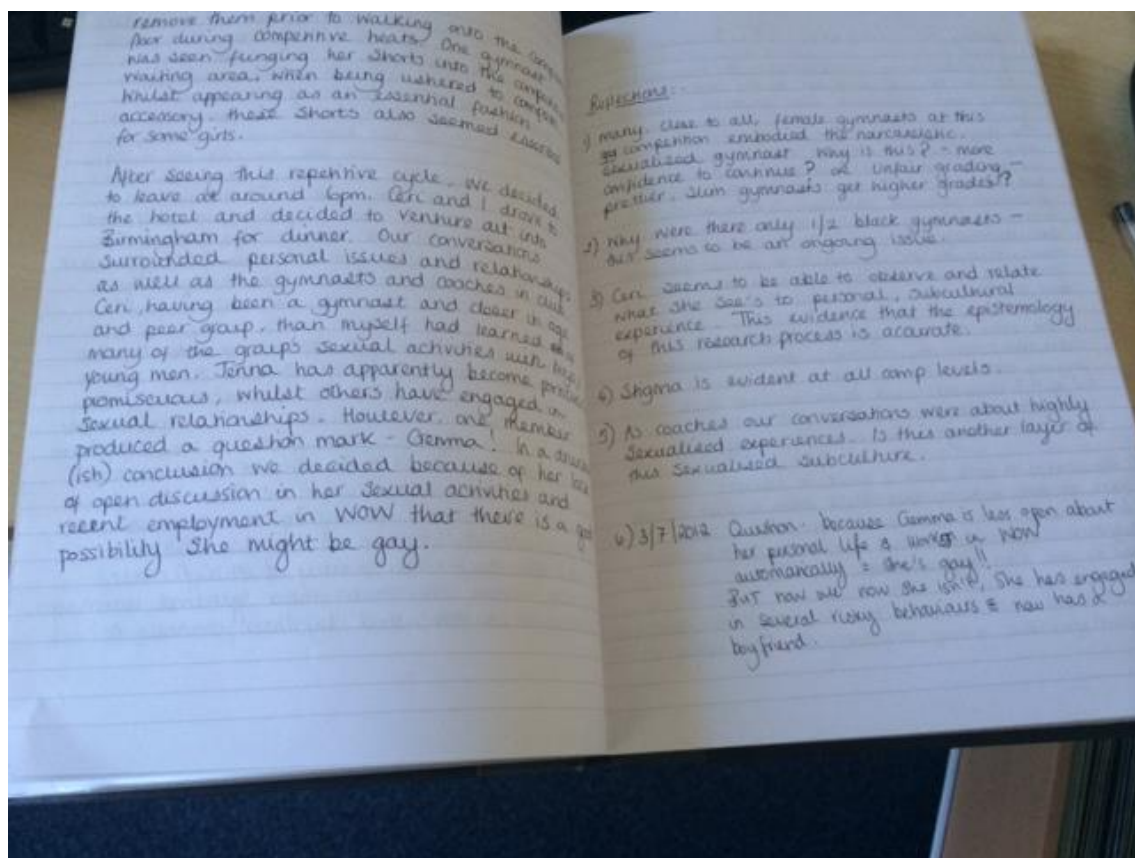 remove them prior to walking onto the
floor during competitive heats. One gymnast
was seen flinging her shorts into the
waiting area, when being ushered to compete.
Whilst appearing as an essential fashion
accessory, these shorts also seemed essential
for some girls.
After seeing this repetitive cycle, we decided
to leave at around 6pm. Ceri and I drove to
the hotel and decided to venture out into
Birmingham for dinner. Our conversations
surrounded personal issues and relationships
as well as the gymnasts and coaches in club.
Ceri, having been a gymnast and closer in age
and peer group, than myself had learned
many of the groups sexual activities with
young men. Jenna has apparently become
promiscuous, whilst others have engaged in
sexual relationships. However, one member
produced a question mark - Gemma! In a
(ish) conclusion we decided because of her
of open discussion in her sexual activities and
recent employment in WOW that there is a
possibility she might be gay.
Reflections:-
1) many, close to all, female gymnasts at this
competition embodied the narcassistic,
sexualised gymnast. Why is this? - more
confidence to continue? or unfair grading -
prettier, slim gymnasts get higher grades!?
2) Why were there only 1/2 black gymnasts -
this seems to be an ongoing issue.
3) Ceri seems to be able to observe and relate
what she see's to personal, subcultural
experience. This evidence that the epistemology
of this research process is accurate.
4) Stigma is evident at all comp levels.
5) As coaches our conversations were about highly
sexualised experiences. Is this another layer of
this sexualised subculture.
6) 3/7/2012 Question - because Gemma is less open about
her personal life & works in WOW
automatically = she's gay!!
BUT now we now she isn't, she has engaged
in several risky behaviours & now has a
boyfriend.